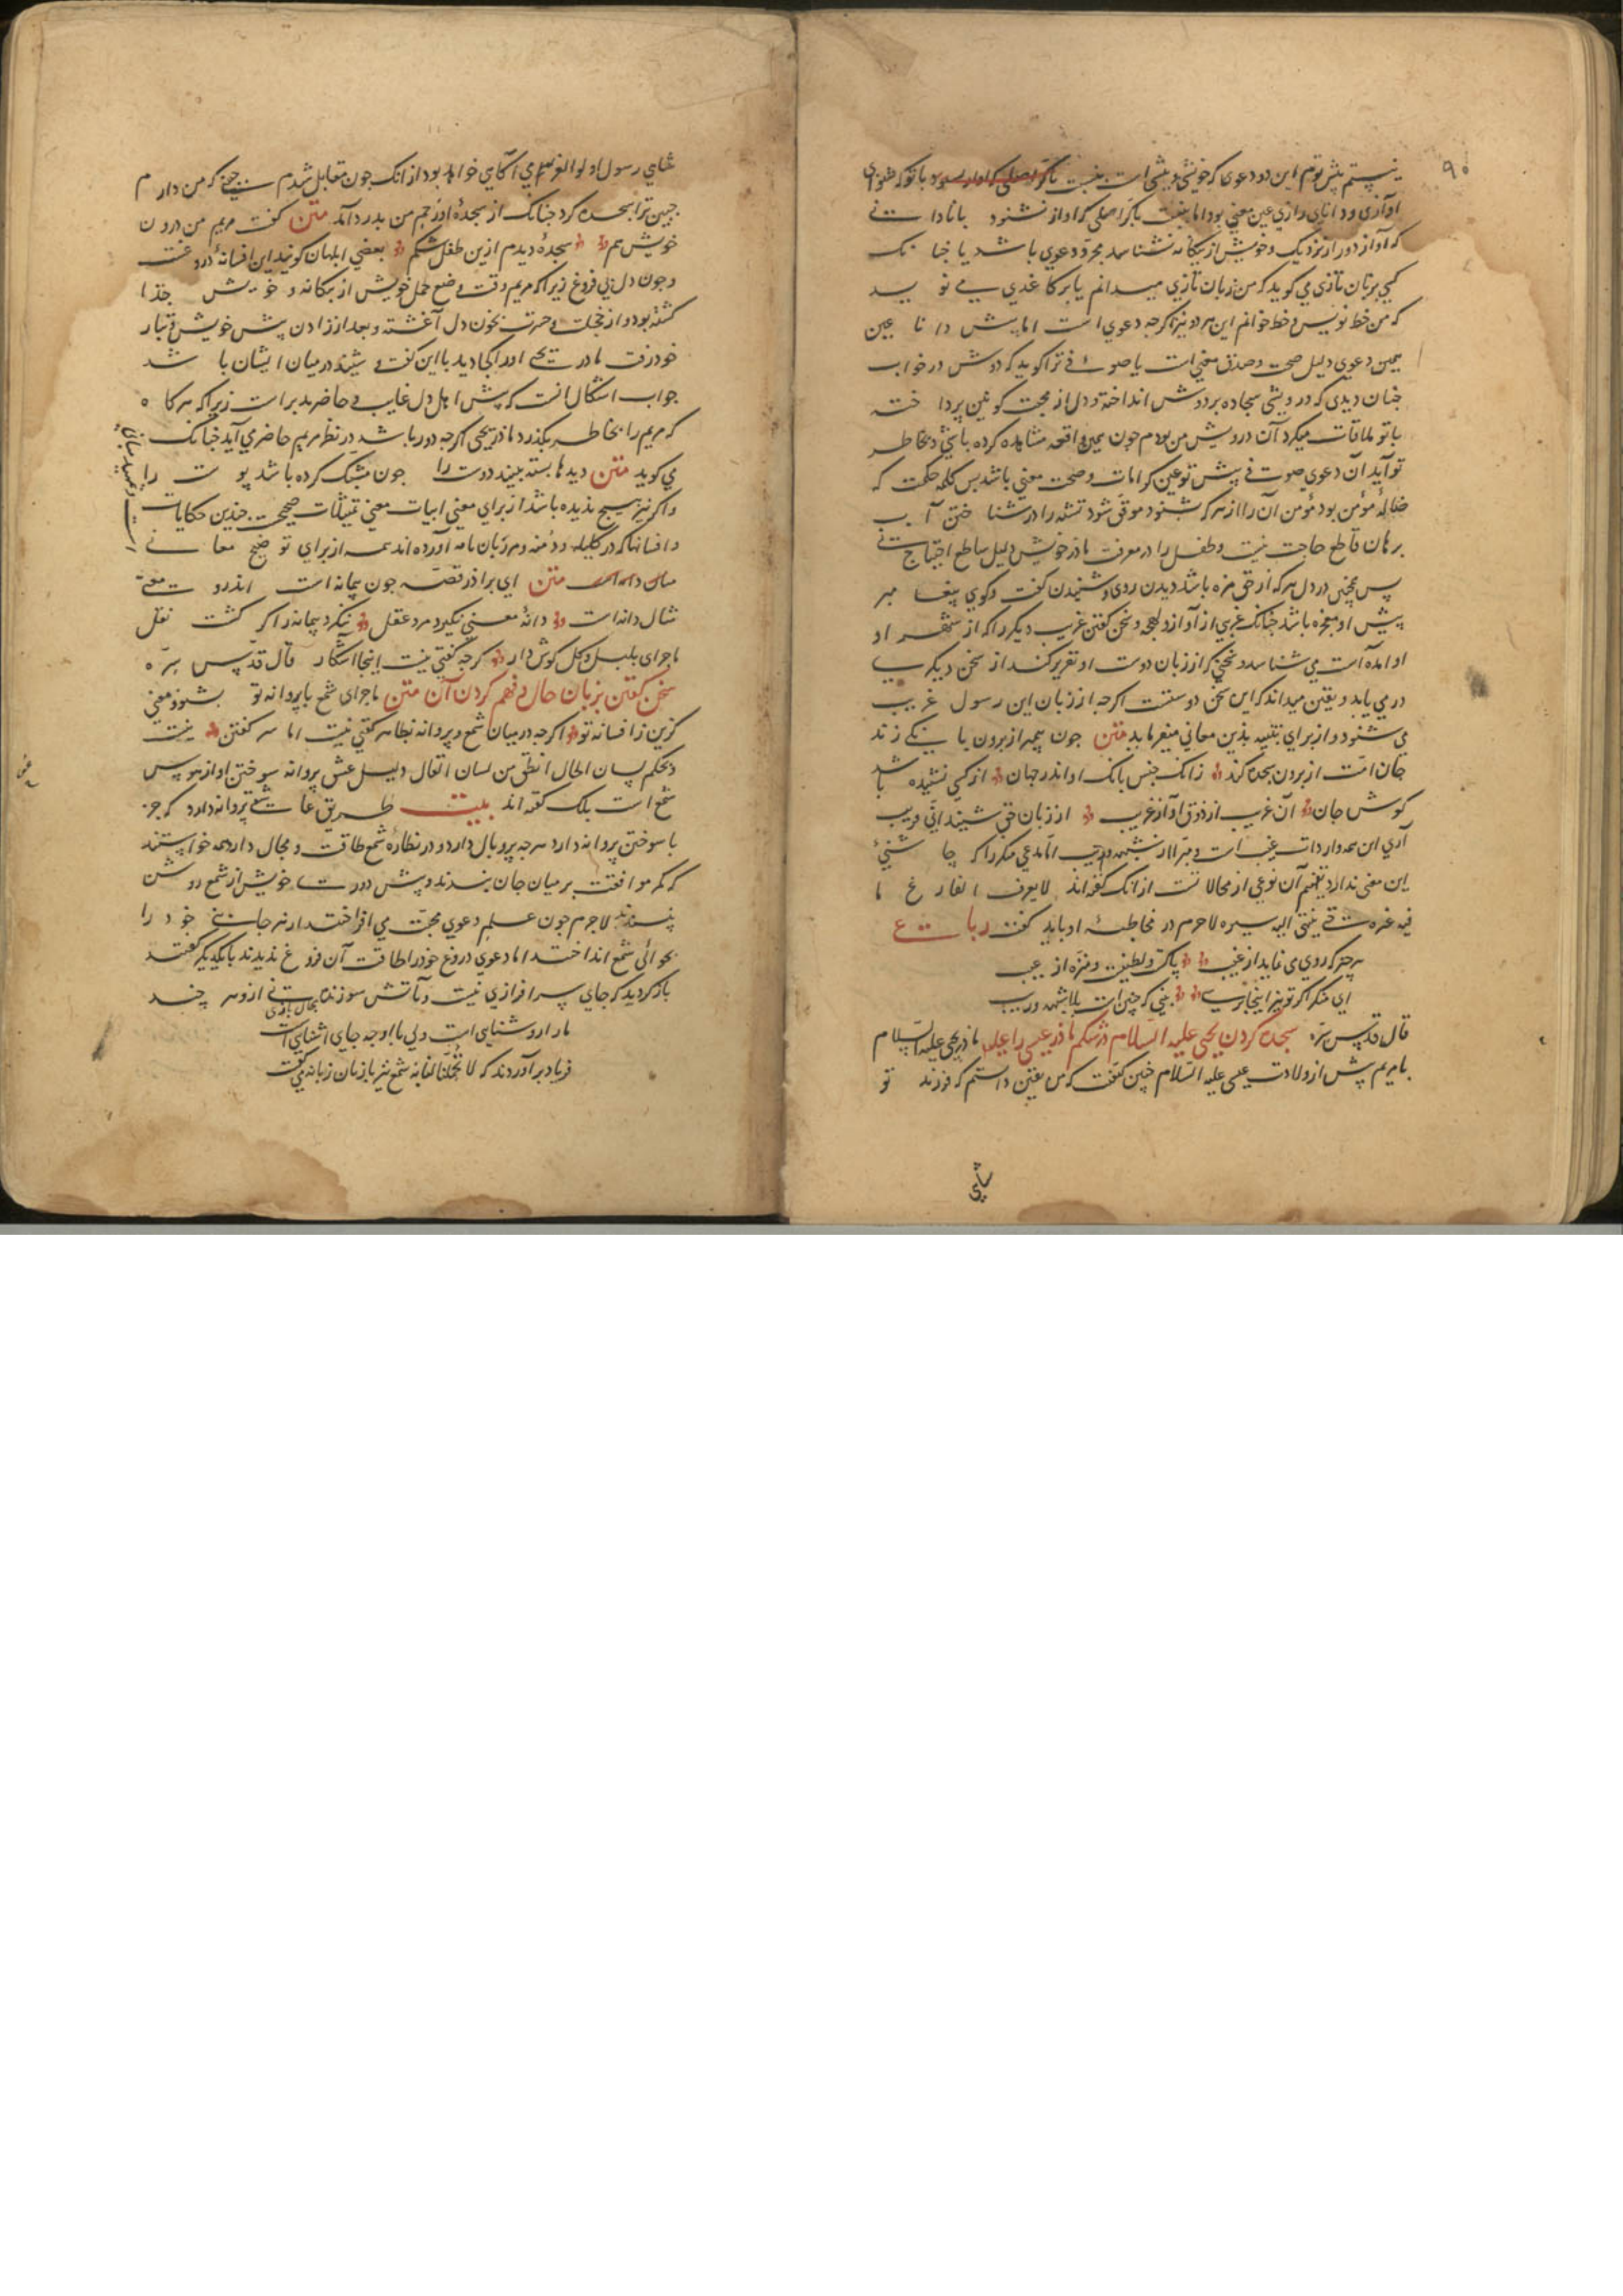 ۹۰
نیستم پیش توم این دو دعوی که خویشی و پیشی است بنسبت با تو که شنوای
آوازی و دانای رازی عین معنی بود اما بنسبت با کر اصلی که آواز نشنود یا نادانی
که آواز دور از نزدیک و خویش از بیکانه نشناسد مجرد دعوی باشد یا چنانک
کسی بزبان تازی می کوید که من زبان تازی میدانم یا بر کاغدی می نویسد
که من خط نویس و خط خوانم این هر دو نیز اکرچه دعوی است اما پیش دانا عین
همین دعوی دلیل صحت و صدق معنی است یا صوفئ ترا کوید که دوش در خواب
چنان دیدی که درویشی سجاده بر دوش انداخته و دل از محبت کونین پرداخته
با تو ملاقات میکرد آن درویش من بودم چون همین واقعه مشاهده کرده باشی و بخاطر
تو آید آن دعوی صوفی پیش تو عین کرامات و صحت معنی باشد پس کلمه حکمت که
ضالهٔ مؤمن بود مؤمن آن را از هر که شنود موقن شود تشنه را در شناختن آب
برهان قاطع حاجت نیست و طفل را در معرفت مادر خویش دلیل ساطع احتیاج نی
پس همچنین در دل هر که از حق مزه باشد دیدن روی و شنیدن کفت و کوی پیغامبر
پیش او معجزه باشد چنانک غریبی از آواز و لهجه و سخن کفتن غریب دیکر را که از شهر او
او آمده است می شناسد و سخنی که از زبان دوست او تقریر کند از سخن دیکری
در می یابد و یقین میداند که این سخن دوستست اکرچه از زبان این رسول غریب
می شنود و از برای تنبیه بدین معانی میفرماید متن چون پیمبر از برون بانکی زند
جان امت از درون سجده کند زانک جنس بانک او اندر جهان از کسی نشنیده باشد
کوش جان آن غریب از ذوق آواز غریب از زبان حق شنید انی قریب
آری این همه واردات غیب است و مبرا از شبهه و ریب اما مدعی منکر را که چاشنی
این معنی ندارد تفهیم آن نوعی از محالاتست از انک کفته اند لا یعرف الفارغ ما
فیه غیره حتی ینتهی الیه سیره لاجرم در مخاطبهٔ او باید کفت رباعی
هر چیز که روی می نماید از غیب پاک و لطیف و منزه از عیب
ای منکر اکر تو نیز اینجا رسی بینی که چنین است بلا شبهه و ریب
قال قدس سره سجده کردن یحیی علیه السلام در شکم مادر عیسی را علیه مادر یحیی علیه السلام
با مریم پیش از ولادت عیسی علیه السلام چنین کفت که من یقین دانستم که فرزند تو
شاهی
شاهی رسول اولوالعزمی آکاهی خواهد بود از انک چون مقابل شدم جنینی که من دارم
جنین ترا سجده کرد چنانک از سجدهٔ او رحم من بدرد آمد متن کفت مریم من درون
خویش هم سجدهٔ دیدم ازین طفل شکم بعضی ابلهان کویند این افسانهٔ دروغست
و چون دل بی فروغ زیرا که مریم وقت وضع حمل خویش از بیکانه و خویش جدا
کشته بود و از خجلت و حسرت بخون دل آغشته و بعد از زادن پیش خویش و تبار
خود رفت مادر یحیی او را کجا دید با این کفت و شنید در میان ایشان باشد
جواب اشکال انست که پیش اهل دل غایب و حاضر برابر است زیرا که هرکاه
که مریم را بخاطر بکذرد مادر یحیی اکرچه دور باشد در نظر مریم حاضر می آید چنانک
می کوید متن دیدها بسته ببیند دوست را چون مشبک کرده باشد پوست را
و اکر نیز هیچ ندیده باشد از برای معنی ابیات معنی تمثیلات صحیحست چندین حکایات
و افسانها که در کلیله و دمنه و مرزبان نامه آورده اند همه از برای توضیح معانی
متن ای برادر قصه چون پیمانه است اندرو معنی
مثال دانه است دانهٔ معنی بکیرد مرد عقل ننکرد پیمانه را کر کشت نقل
ماجرای بلبل و کل کوش دار کرچه کفتی نیست اینجا آشکار قال قدس سره
سخن کفتن بزبان حال و فهم کردن آن متن ماجرای شمع با پروانه تو بشنو و معنی
کزین ز افسانه تو اکرچه در میان شمع و پروانه بظاهر کفتی نیست اما سر کفتن نیست
و بحکم لسان الحال انطق من لسان المقال دلیل عشق پروانه سوختن او از هوس
شمع است بلک کفته اند بیت طریق عاشقی پروانه دارد که جز
با سوختن پروا ندارد هر چه پر و بال دارد و در نظارهٔ شمع طاقت و مجال دارد همه خواستند
که کمر موافقت بر میان جان بندند و پیش دوست خویش از شمع روشن
پسندند لاجرم چون علم دعوی محبت می افراختند از هر جانبی خود را
بحوالئ شمع انداختند اما دعوی دروغ خود را طاقت آن فروغ ندیدند با یکدیکر کفتند
باز کردید که جای سرافرازی نیست و با آتش سوزنده مجال بازی نی ازو هر چند
ما را روشنایی است ولی ما را چه جای آشنایی است
فریاد برآوردند که لا تحملنا مالا طاقة لنا به شمع نیز با زبان زبانه می کفت